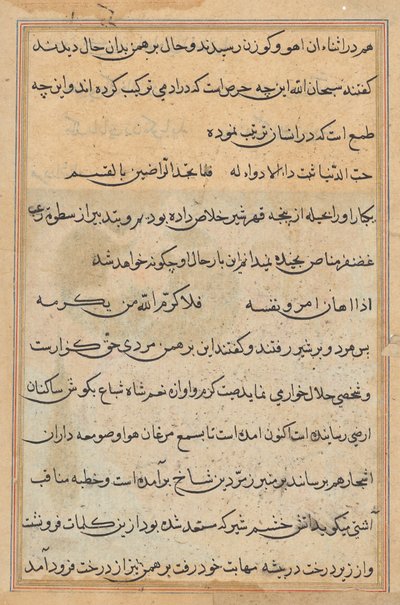 هم در اثناء ان اهو و کوزن رسیدند و حال برهمن بدان حال دیدند
کفتند سبحان الله این چه حرص است که در ادمی ترکیب کرده اند و این چه
طمع است که در انسان ترتیب نموده
حب الدنیا شت داء لا دواء له فلا تجد الراضین بالقسم
یکبار او را بحیله از پنجه قهر شیر خلاص داده بودیم و بتدبیر از سطوم رعب
غضنفر مناص بجیده نمیدانم این بار حال او چکونه خواهد شد
اذا اهان امرو نفسه فلا کرم الله من یکرمه
پس هر دو بر شیر رفتند و کفتند این برهمن مردی حق کزار است
و شخصی حلال خوار می نماید صیت کرم و اوازه نعم شاه شباع بکوش ساکنان
ارضی رسانیده است اکنون امده است تا بسمع مرغان هوا و صومعه داران
اشجار هم برساند بر منبر زمردین شاخ برآمده است و خطبه مناقب
آشتی میکوید اتش خشم شیر که مستعد شده بود ازین کلمات فرو نشت
و از زیر درخت در بیشه مهابت خود رفت برهمن نیز از درخت فرود آمد